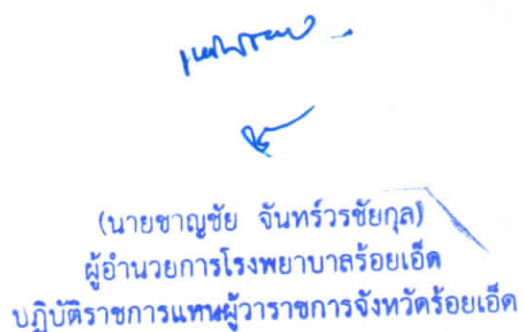 (นายชาญชัย จันทร์วรชัยกุล)
ผู้อำนวยการโรงพยาบาลร้อยเอ็ด
ปฏิบัติราชการแทนผู้ว่าราชการจังหวัดร้อยเอ็ด